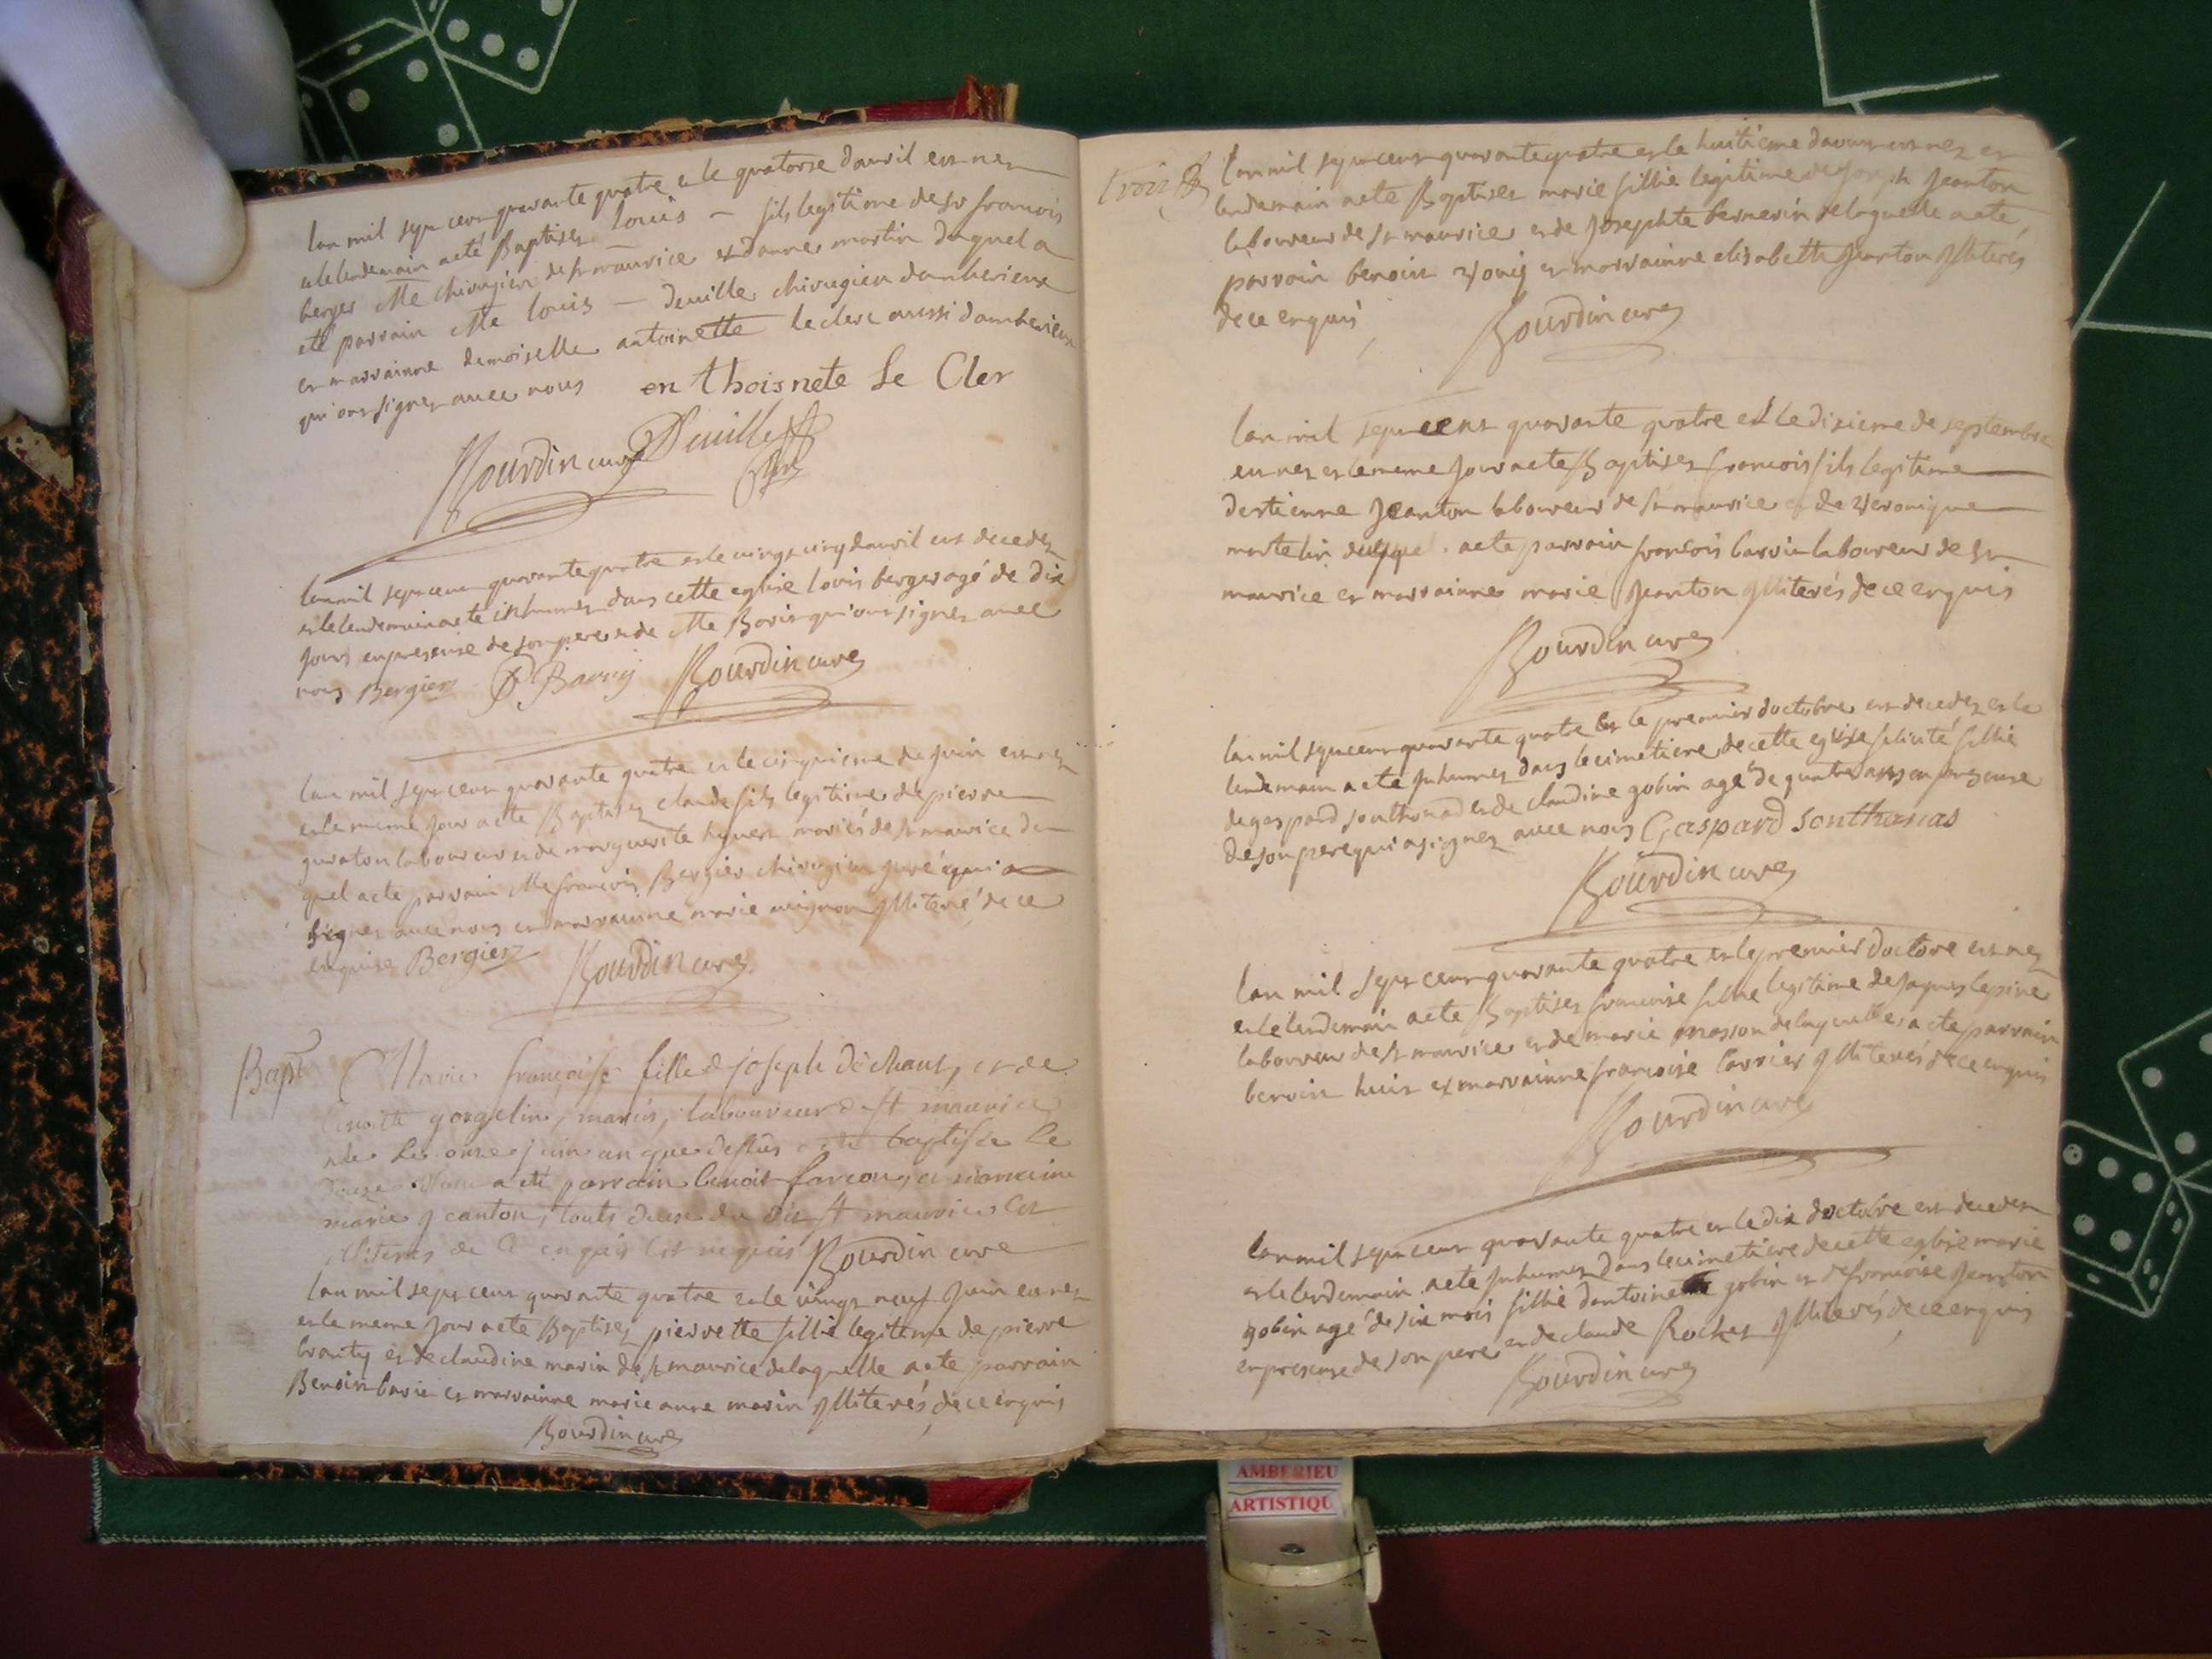 lan mil sept cent quarante quatre et le quatorse davril est nez
et le lendemain a eté Baptisez louis — fils legitime de sr francois
berger Me chirugien de st maurice et danne martin duquel a
eté parrain Me louis — deville chirugien damberieux
et marrainne demoiselle antoinette leclerc aussi damberieux
qui ont signez avec nous en thoisnete Le Cler
Bourdin curé Deville
lan mil sept cent quarante quatre et le vingt cinq davril est decedez
et le lendemain a eté inhumez dans cette eglise louis berger agé de dix
jours en presence de son pere et de Me Barin qui ont signez avec
nous Bergier Bourdin curé
lan mil sept cent quarante quatre et le cinquieme de juin est nez
et le meme jour a eté Baptisez claude fils legitime de pierre
laboureur et de marguerite mariés de st maurice du
quel a eté parrain Me francois Bergier chirugien juré qui a
signez avec nous et marrainne marie avignon jllitere de ce
enquise Bergier Bourdin curé
Bapt Marie françoise fille de joseph dechaut, et de
benoitte gongelin, mariés, laboureur de st maurice
née le onze juin an que dessus a eté baptisée le
douze a eté parrain benoit farcon, et maraine
marie jeanton, touts deux du dit st maurice
illiterés de ce enquis et requis Bourdin curé
lan mil sept cent quarante quatre et le vingt neuf juin est nez
et le meme jour a eté Baptisez pierrette fillie legitime de pierre
et de claudine marin de st maurice de laquelle a eté parrain
Benoit et marrainne marie anne marin jlliterés de ce enquis
Bourdin curé
trois lan mil sept cent quarante quatre et le huitieme daoust est nez et
lendemain a eté Baptisez marie fillie legitime de joseph jeanton
laboureur de st maurice et de josephte bernerin de laquelle a eté
parrain benoist et marrainne elisabeth jeanton jlliterés
de ce enquis Bourdin curé
lan mil sept cent quarante quatre et le dixieme de septembre
est nez et le meme jour a eté Baptisez francois fils legitime
destienne jeanton laboureur de st maurice et de veronique
martelin duquel a eté parrain francois laboureur de st
maurice et marrainne marie jeanton jlliterés de ce enquis
Bourdin curé
lan mil sept cent quarante quatre et le premier doctobre est decedez et le
lendemain a eté jnhumez dans le cimetiere de cette eglise felicité fillie
de gaspard southonad et de claudine gobin agé de quatre ans en presence
de son pere qui a signez avec nous Gaspard Sonthonas
Bourdin curé
lan mil sept cent quarante quatre et le premier doctore est nez
et le lendemain a eté Baptisez francoise fillie legitime de jaques lepine
laboureur de st maurice et de marie masson de laquelle a eté parrain
benoin huit et marrainne francoise jlliterés de ce enquis
Bourdin curé
lan mil sept cent quarante quatre et le dix doctobre est decedez
et le lendemain a eté jnhumez dans le cimetiere de cette eglise marie
gobin agé de six mois fillie dantoine gobin et de francoise jeanton
en presence de son pere et de claude Rochet jlliterés de ce enquis
Bourdin curé
AMBERIEU
ARTISTIQU